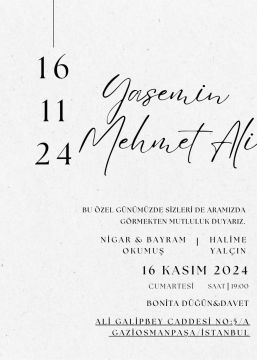 16
11
24
Yasemin
Mehmet Ali
BU ÖZEL GÜNÜMÜZDE SİZLERİ DE ARAMIZDA
GÖRMEKTEN MUTLULUK DUYARIZ.
NİGAR & BAYRAM | HALİME
OKUMUŞ YALÇIN
16 KASIM 2024
CUMARTESİ SAAT | 19:00
BONİTA DÜĞÜN&DAVET
ALİ GALİPBEY CADDESİ NO:5/A
GAZİOSMANPAŞA/İSTANBUL